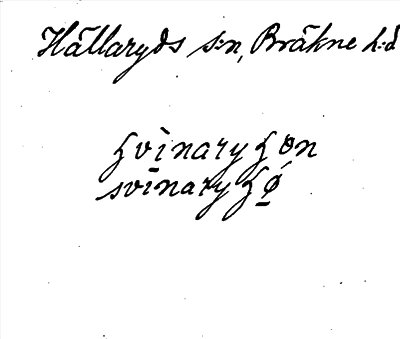 Hällaryds s:n, Bräkne h:d
ɧvìnaryɧøn
svinaryɧǿ